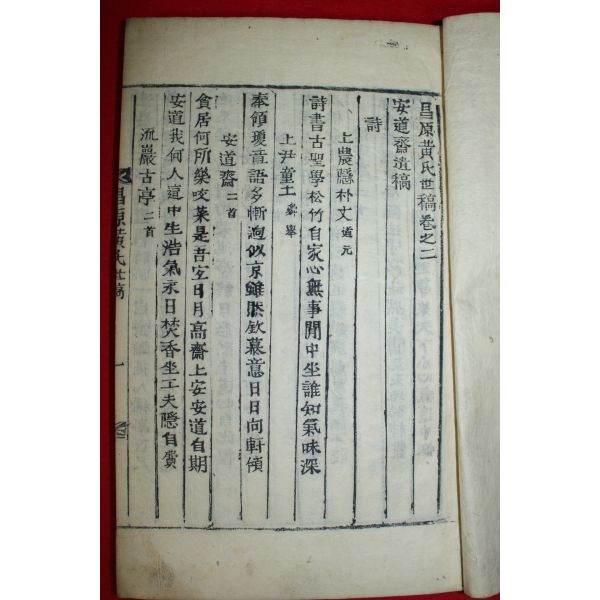 昌原黃氏世稿卷之二
安道齋遺稿
詩
上農隱朴丈道元
詩書古聖學松竹自家心無事閒中坐誰知氣味深
上尹童土舜擧
奉領瓊音語多慚過似京雖然欽慕意日日向軒傾
安道齋二首
貪居何所樂咬菜是吾室日月高齋上安安道自期
安道我何人這中生浩氣永日焚香坐工夫隱自賞
流巖古亭二首
昌原黃氏世稿
一